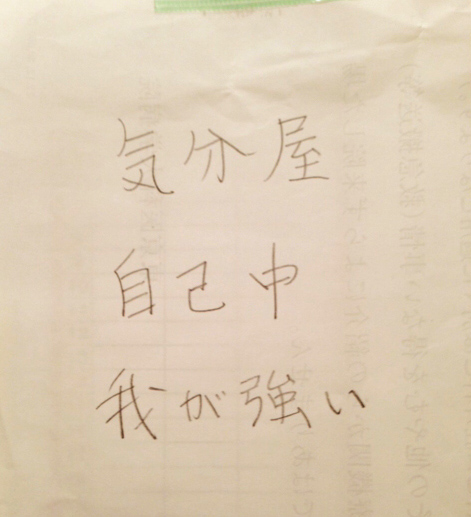 気分屋
自己中
我が強い